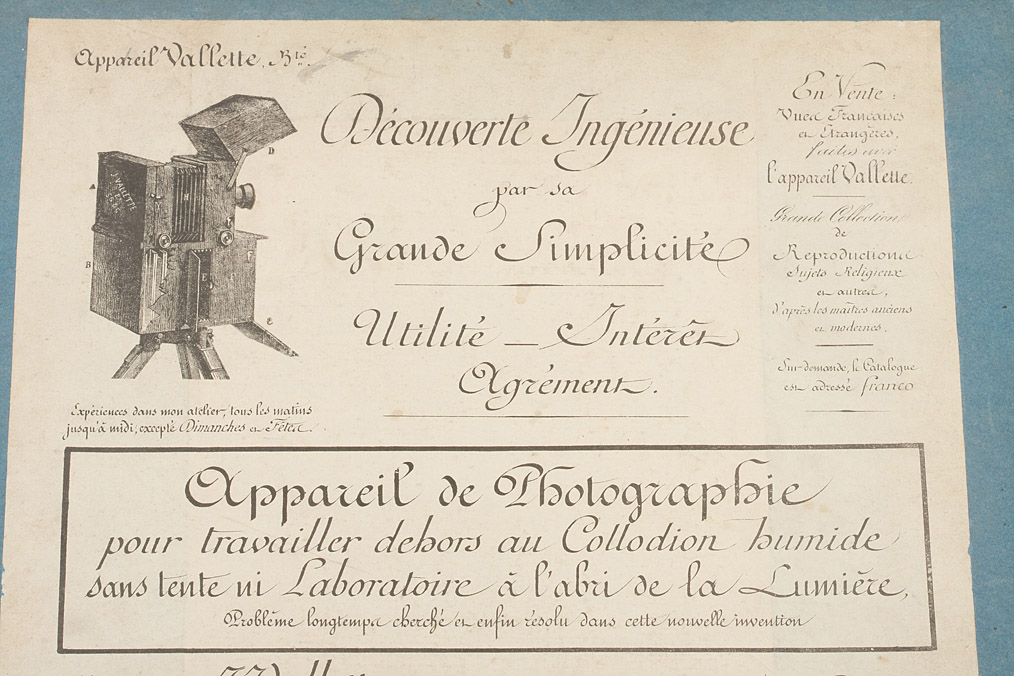 Appareil Vallette, Bté.
J. VALLETTE
BTÉ
PARIS
A
B
D
H
E
F
C
Expériences dans mon atelier, tous les matins
jusqu'à midi, excepté Dimanches et Fêtes.
Découverte Ingénieuse
par sa
Grande Simplicité
Utilité — Intérêt
Agrément.
En Vente :
Vues Françaises
et Etrangères,
faites avec
l'appareil Vallette.
Grande Collection
de
Reproductions
Sujets Religieux
et autres,
d'après les maîtres anciens
et modernes.
Sur demande, le Catalogue
est adressé franco
Appareil de Photographie
pour travailler dehors au Collodion humide
sans tente ni Laboratoire à l'abri de la Lumière,
Problème longtemps cherché et enfin résolu dans cette nouvelle invention